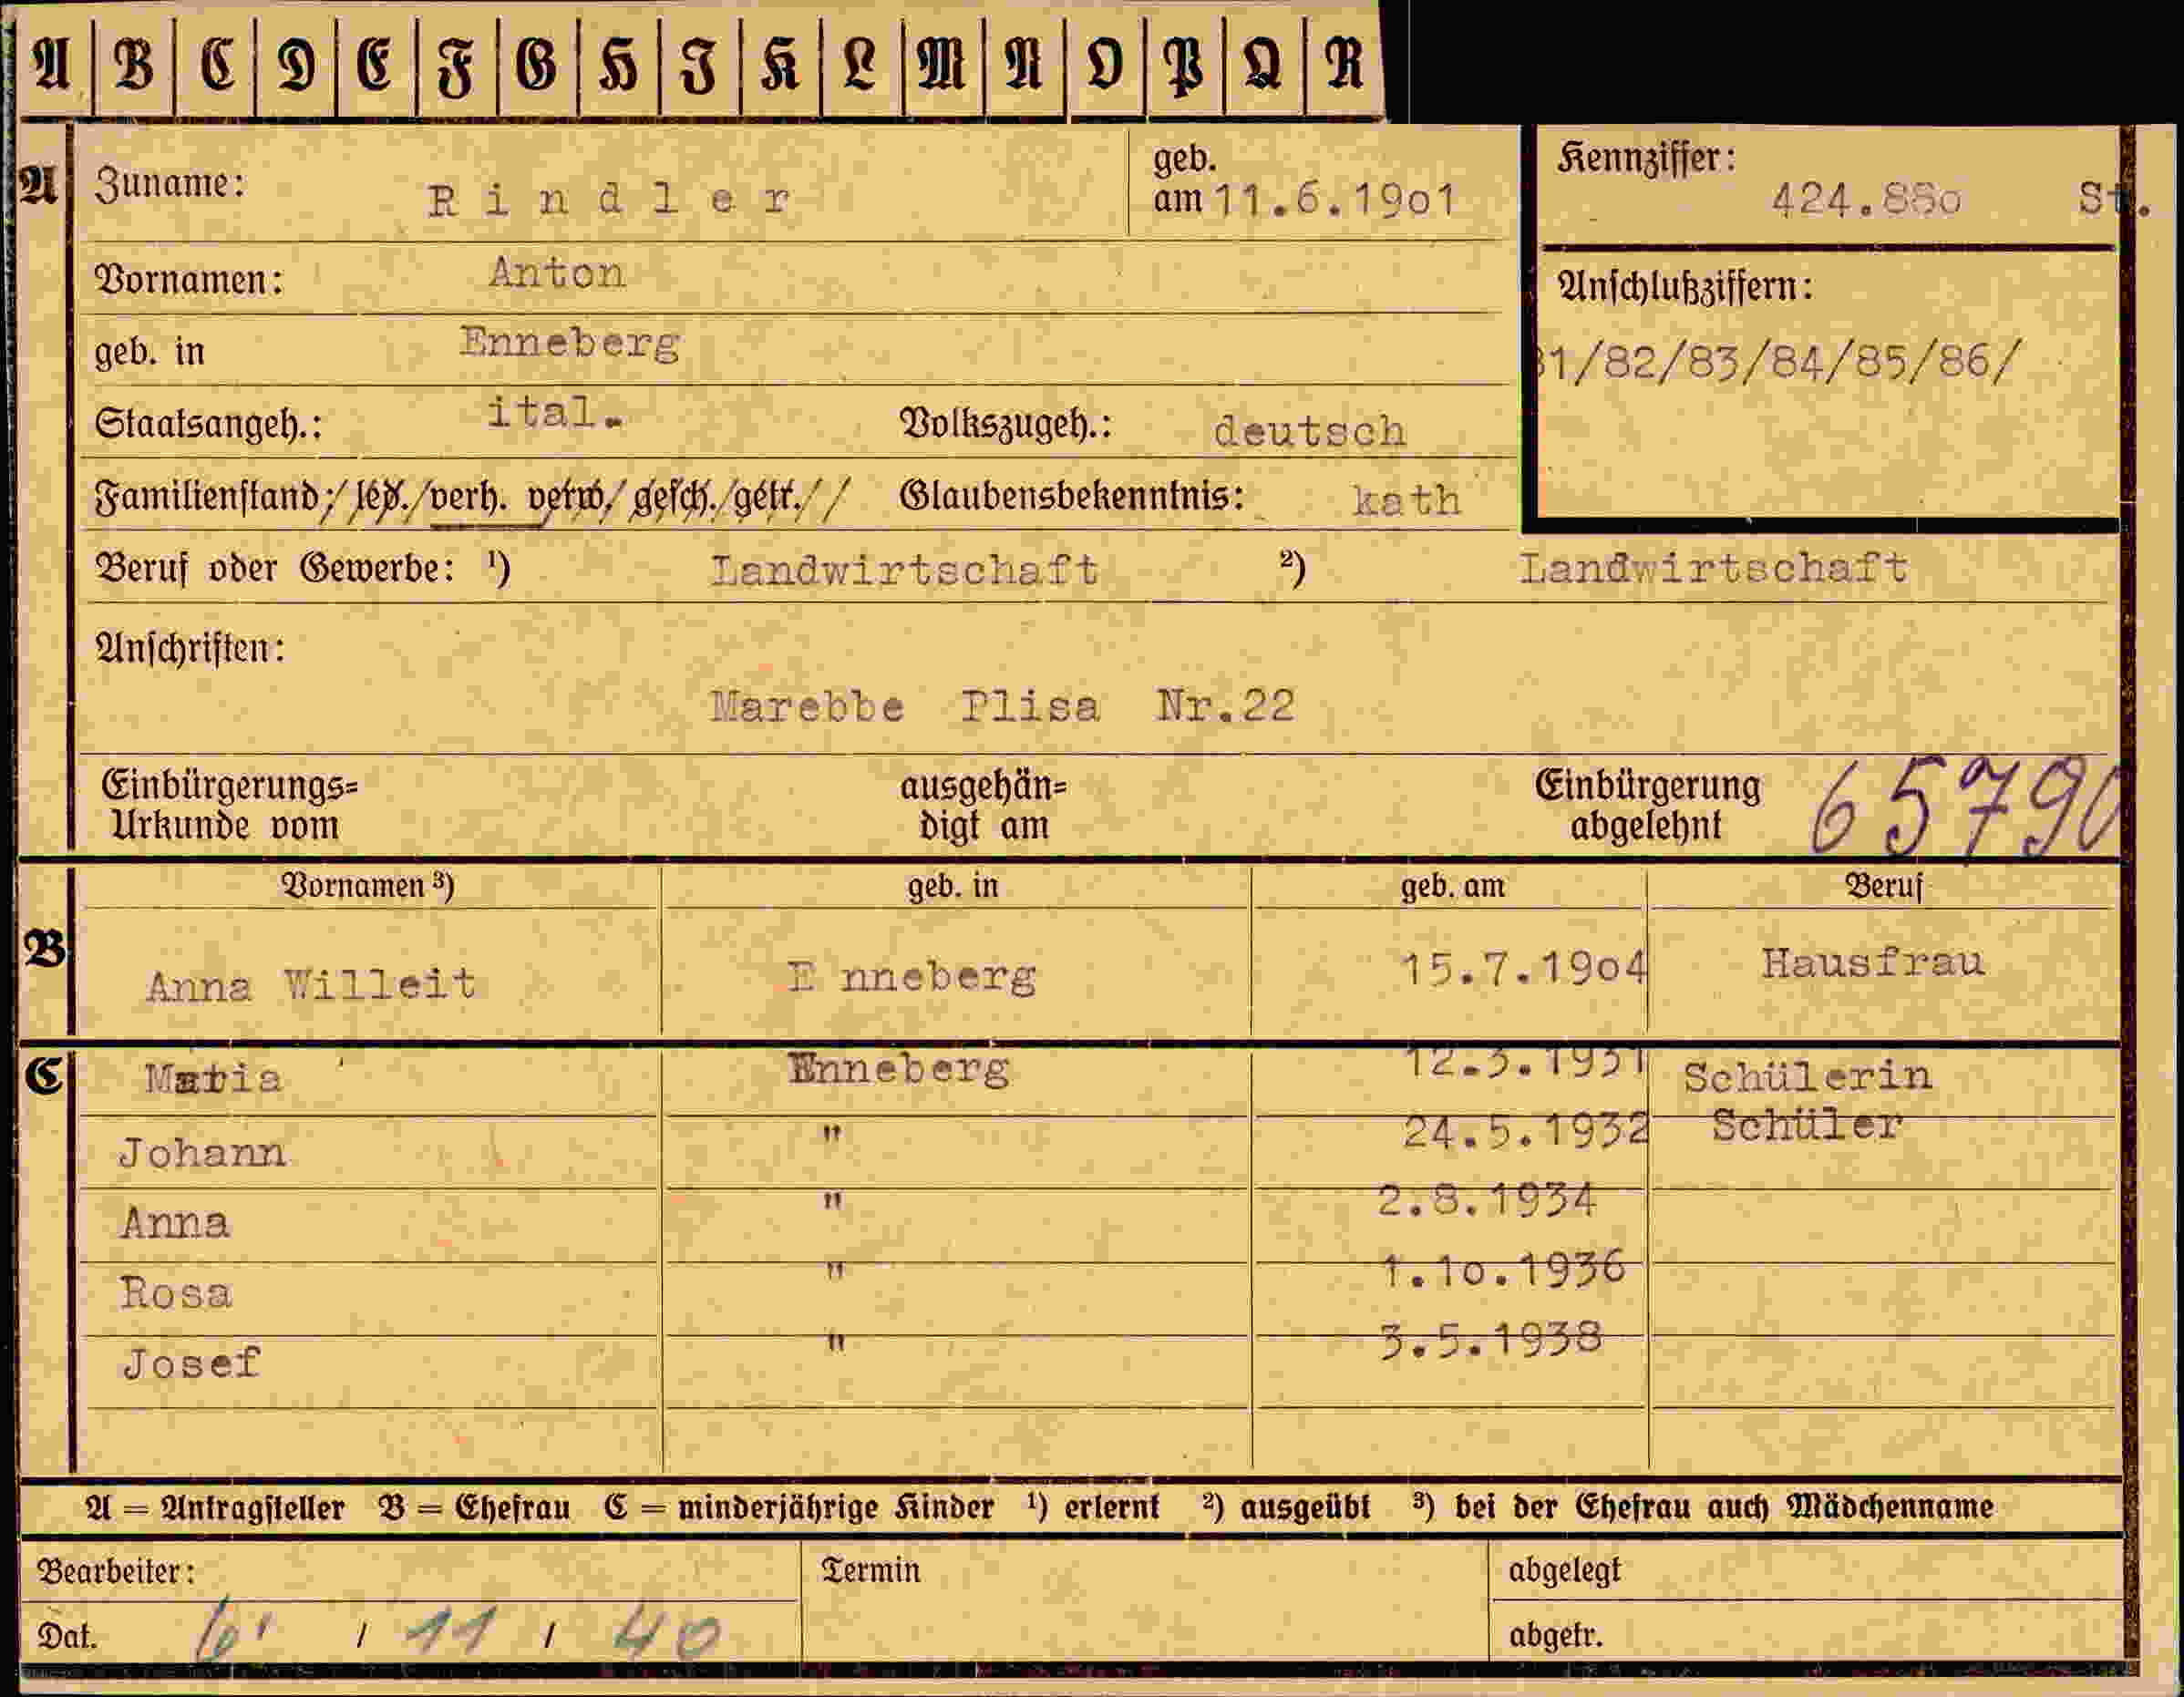 A B C D E F G H I K L M N O P Q R
A Zuname: Rindler geb. am 11.6.1901 Kennziffer: 424.880 St.
Vornamen: Anton Anschlußziffern:
geb. in Enneberg 81/82/83/84/85/86/
Staatsangeh.: ital. Volkszugeh.: deutsch
Familienstand: led. verh. verw. gesch. getr. Glaubensbekenntnis: kath
Beruf oder Gewerbe: 1) Landwirtschaft 2) Landwirtschaft
Anschriften:
Marebbe Plisa Nr.22
Einbürgerungs= ausgehän= Einbürgerung 65790
Urkunde vom digt am abgelehnt
Vornamen 3) geb. in geb. am Beruf
B Anna Willeit E nneberg 15.7.1904 Hausfrau
C Maria Enneberg 12.3.1931 Schülerin
Johann " 24.5.1932 Schüler
Anna " 2.8.1934
Rosa " 1.10.1936
Josef " 3.5.1938
A = Antragsteller B = Ehefrau C = minderjährige Kinder 1) erlernt 2) ausgeübt 3) bei der Ehefrau auch Mädchenname
Bearbeiter: Termin abgelegt
Dat. / 11 / 40 abgetr.